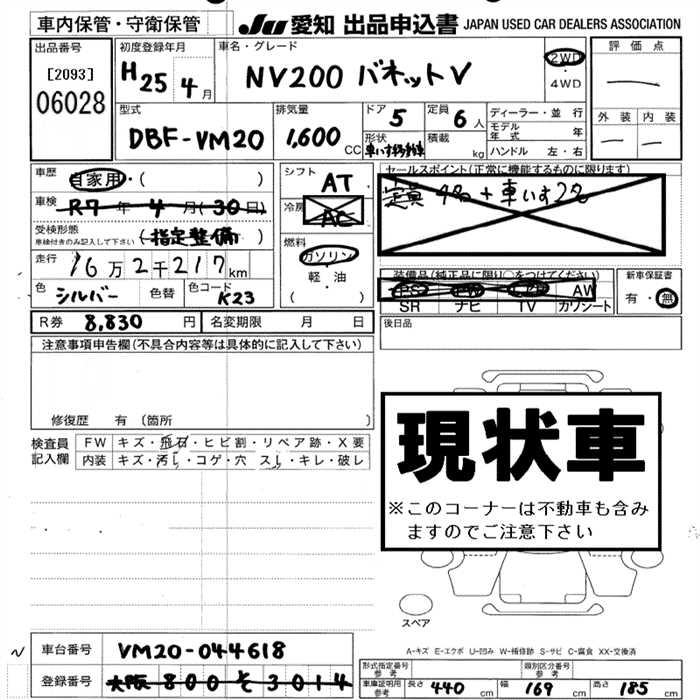 車内保管・守衛保管
JU 愛知 出品申込書 JAPAN USED CAR DEALERS ASSOCIATION
出品番号
[2093]
06028
初度登録年月
H25 4月
車名・グレード
NV200 バネットV
2WD
・
4WD
評価点
外装 内装
型式
DBF-VM20
排気量
1,600 CC
ドア 5
定員 6人
形状 車いす移動車
積載 kg
ディーラー・並行
モデル年式 年
ハンドル 左・右
車歴 自家用・( )
車検 R7年4月(30日)
受検形態
車検付きのみ記入して下さい (指定整備)
走行 16万2千217km
色 シルバー 色替 色コード K23
シフト AT
冷房 AC
燃料
ガソリン
軽・油
( )
セールスポイント(正常に機能するものに限ります)
定員 4名+車いす2名
装備品(純正品に限り○をつけてください)
PS PW エアB AW
SR ナビ TV カワシート
新車保証書
有・無
R券 8,830円 名変期限 月 日
後日品
注意事項申告欄(不具合内容等は具体的に記入して下さい)
修復歴 有(箇所 )
検査員
記入欄
FW キズ・飛石・ヒビ割・リペア跡・X要
内装 キズ・汚し・コゲ・穴 スレ・キレ・破レ
現状車
※このコーナーは不動車も含み
ますのでご注意下さい
スペア
A-キズ E-エクボ U-凹み W-補修跡 S-サビ C-腐食 XX-交換済
車台番号 VM20-044618
登録番号 大阪 800 そ 3014
形式指定番号
参考
類別区分番号
参考
車庫証明用
参考
長さ 440cm 幅 169cm 高さ 185cm